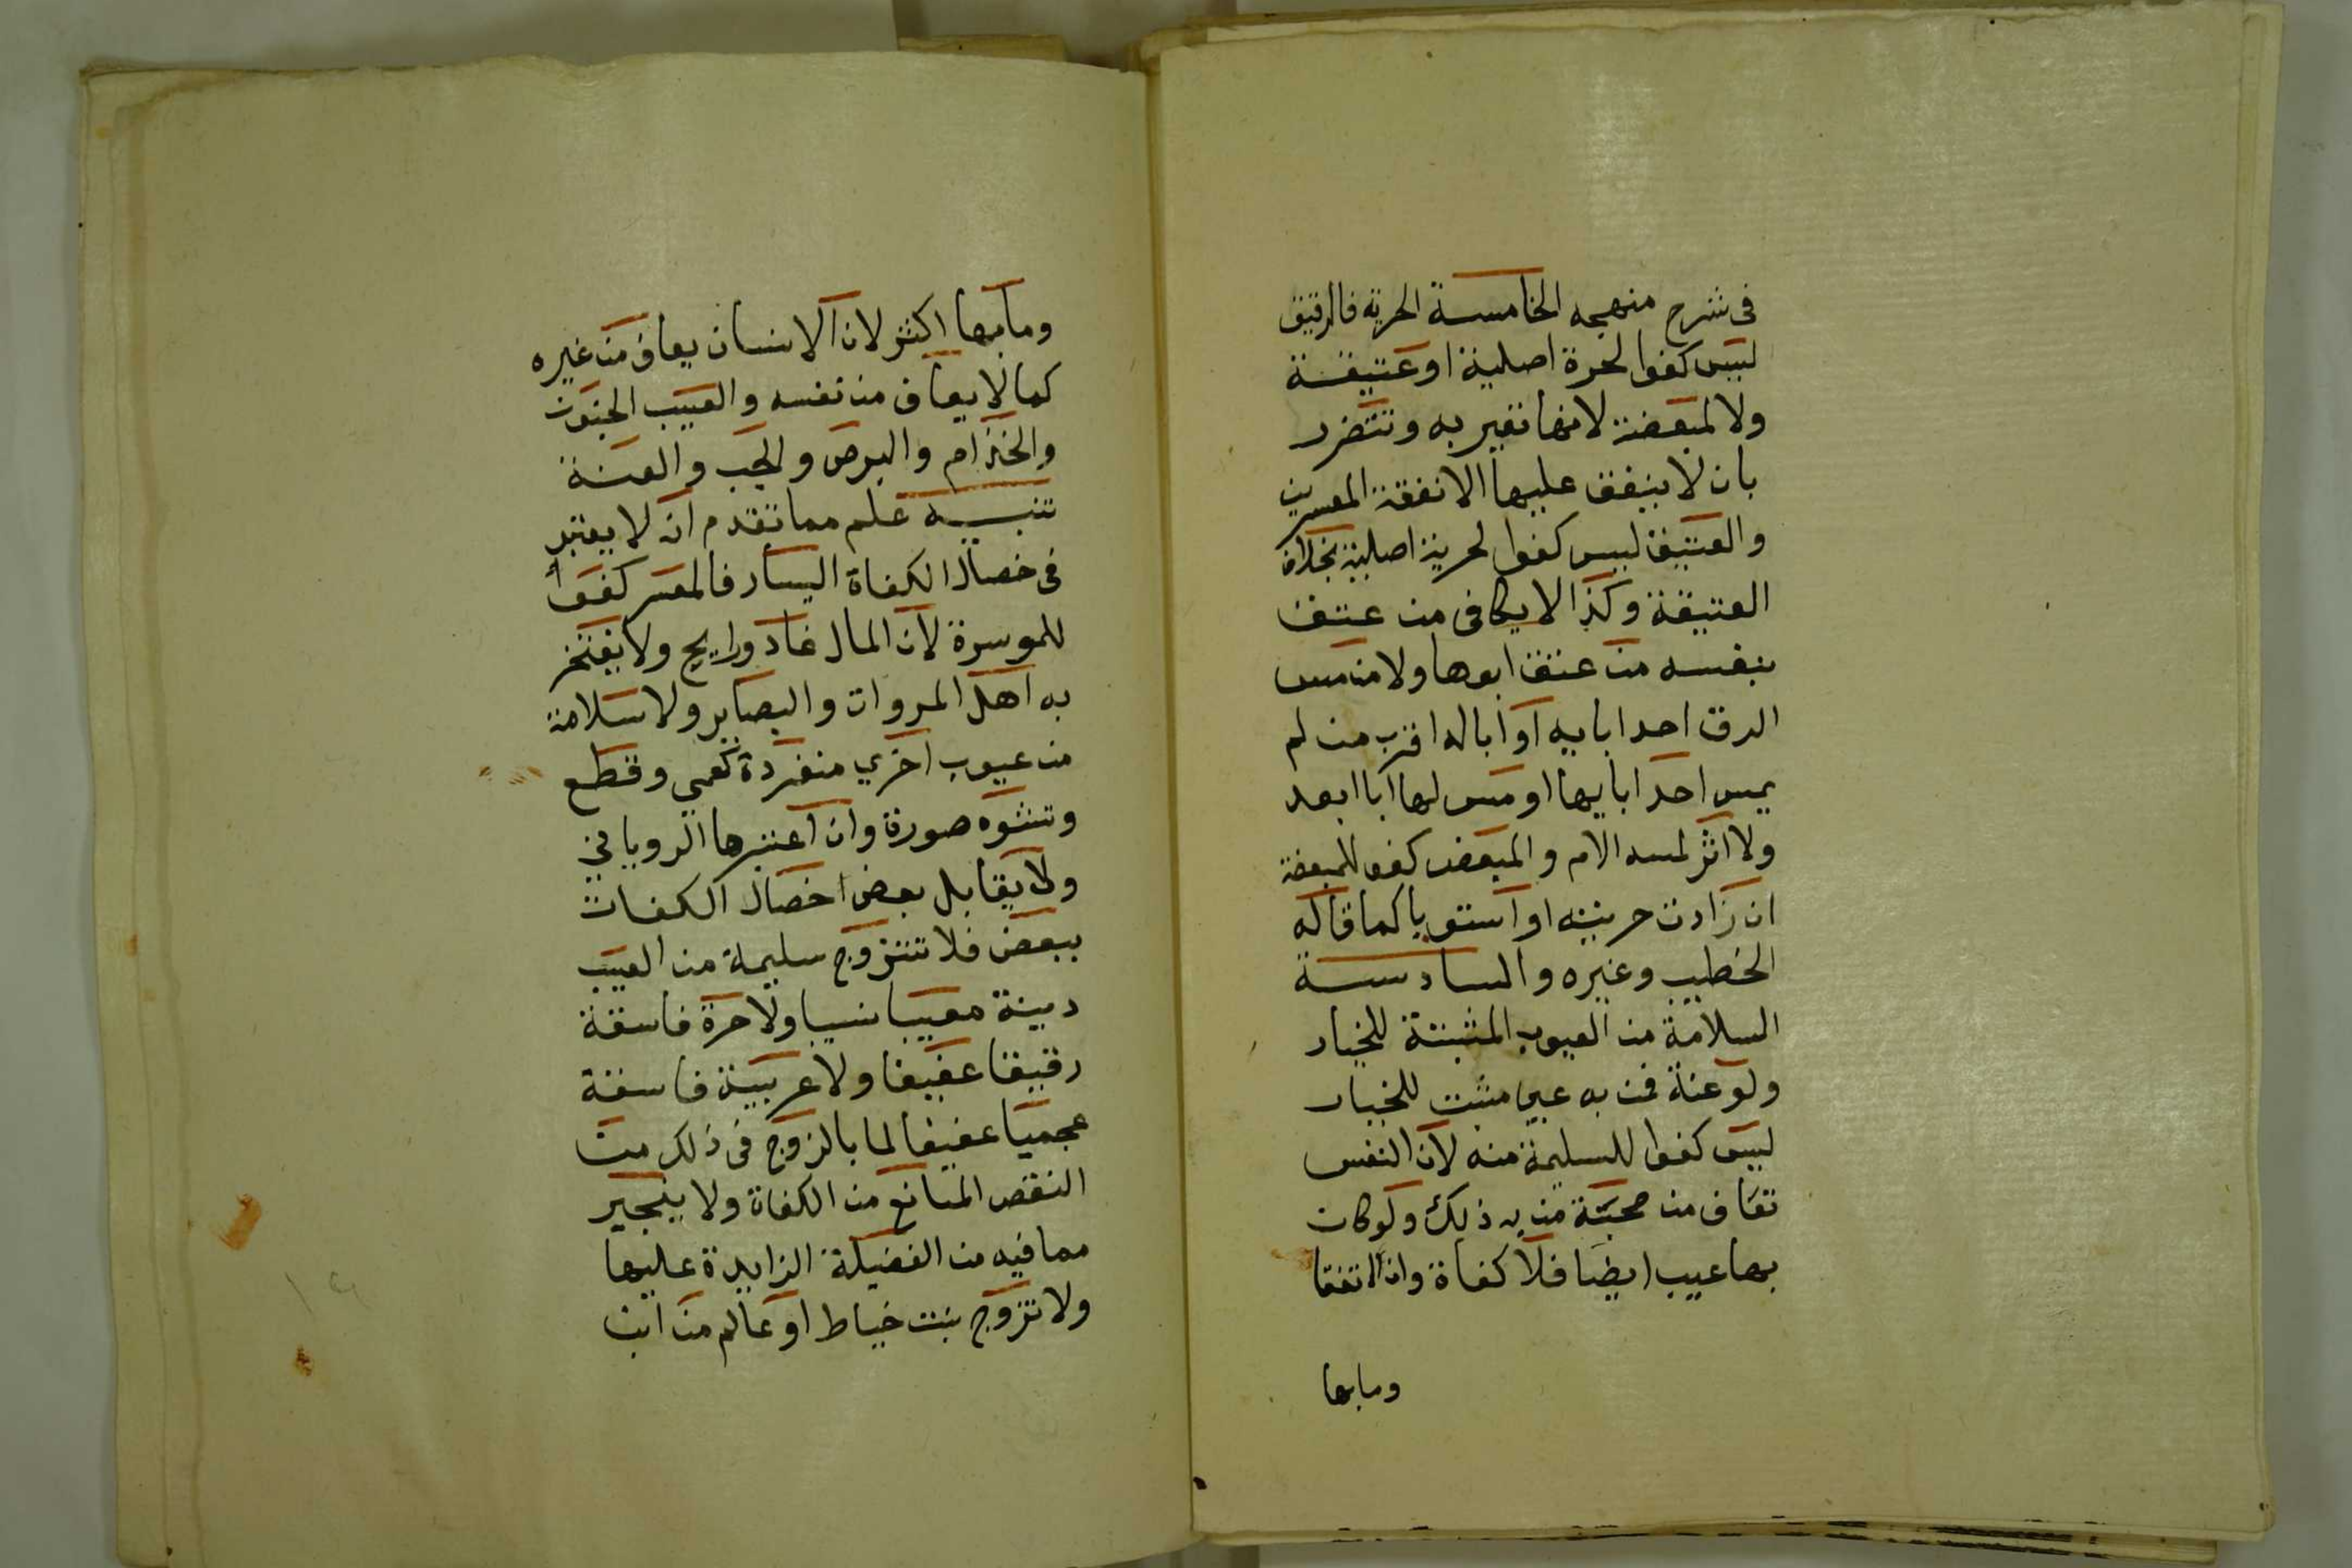 فى شرح منهجه الخامسة الحرية فالرقيق
ليس كفوا لحرة اصلية او عتيقة
ولا لمبعضة لانها تعير به وتتضرر
بان لا ينفق عليها الا نفقة المعسرين
والعتيق ليس كفوا لحرية اصلية بخلاف
العتيقة وكذا لا يكافى من عتق
بنفسه من عتق ابوها ولا من مس
الرق احد ابايه او ابا له اقرب من لم
يمس احد ابايها او مس لها ابا ابعد
ولا اثر لمسه الام والمبعض كفو للمبعضة
ان زادت حريته او استويا كما قاله
الخطيب وغيره والسادسة
السلامة من العيوب المثبتة للخيار
ولو عنة فمن به عيب مثبت للخيار
ليس كفوا للسليمة منه لان النفس
تعاف من صحبة من به ذلك ولو كان
بها عيب ايضا فلا كفاة وان اتفقا
وما بها
وما بها اكثر لان الانسان يعاف من غيره
كما لا يعاف من نفسه والعيب الجنون
والجذام والبرص والجب والعنة
تنبيه علم مما تقدم ان لا يعتبر
فى خصال الكفاة اليسار فالمعسر كفوا
للموسرة لان المال غاد ورايح ولا يفتخر
به اهل المروات والبصاير ولا سلامة
من عيوب اخري منفردة كعمي وقطع
وتشوه صورة وان اعتبرها الروياني
ولا يقابل بعض خصال الكفات
ببعض فلا تتزوج سليمة من العيب
دينة معيبا نسيبا ولا حرة فاسقة
رقيقا عفيفا ولا عربية فاسقة
عجميا عفيفا لما بالزوج فى ذلك من
النقص المانع من الكفاة ولا ينجير
مما فيه من الفضيلة الزايدة عليها
ولا تزوج بنت خياط او عالم من ابن